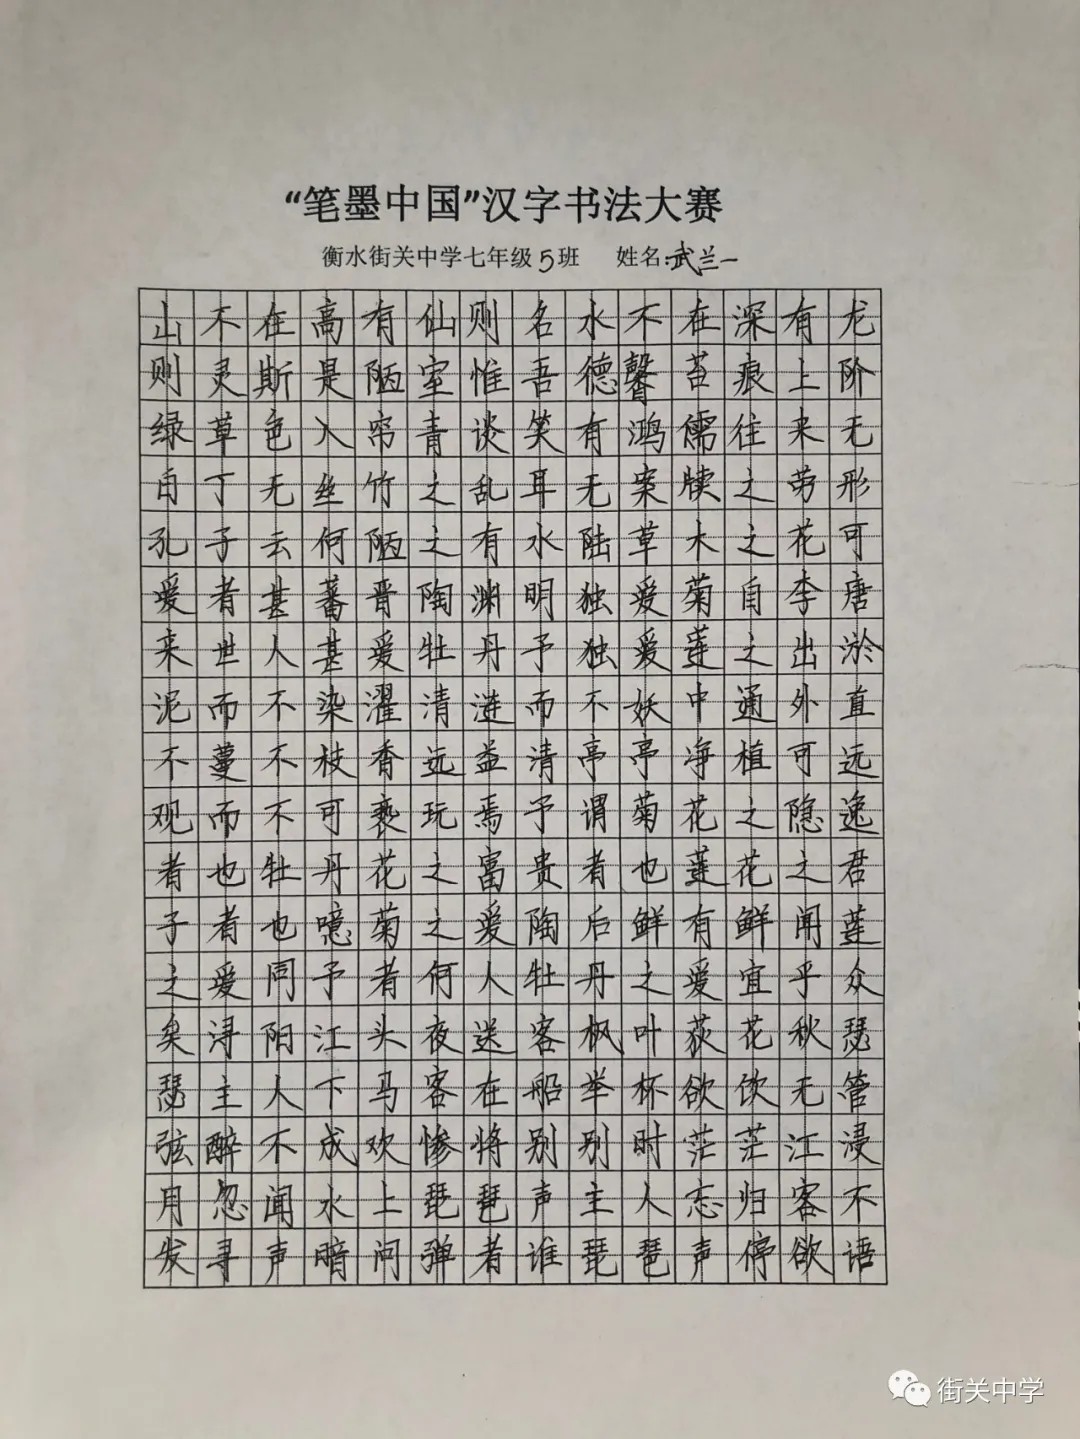 “笔墨中国”汉字书法大赛
衡水街关中学七年级5班 姓名:武兰一
山不在高有仙则名水不在深有龙
则灵斯是陋室惟吾德馨苔痕上阶
绿草色入帘青谈笑有鸿儒往来无
白丁无丝竹之乱耳无案牍之劳形
孔子云何陋之有水陆草木之花可
爱者甚蕃晋陶渊明独爱菊自李唐
来世人甚爱牡丹予独爱莲之出淤
泥而不染濯清涟而不妖中通外直
不蔓不枝香远益清亭亭净植可远
观而不可亵玩焉予谓菊花之隐逸
者也牡丹花之富贵者也莲花之君
子者也噫菊之爱陶后鲜有鲜闻莲
之爱同予者何人牡丹之爱宜乎众
矣浔阳江头夜送客枫叶荻花秋瑟
瑟主人下马客在船举杯欲饮无管
弦醉不成欢惨将别别时茫茫江浸
月忽闻水上琵琶声主人忘归客不
发寻声暗问弹者谁琵琶声停欲语
街关中学